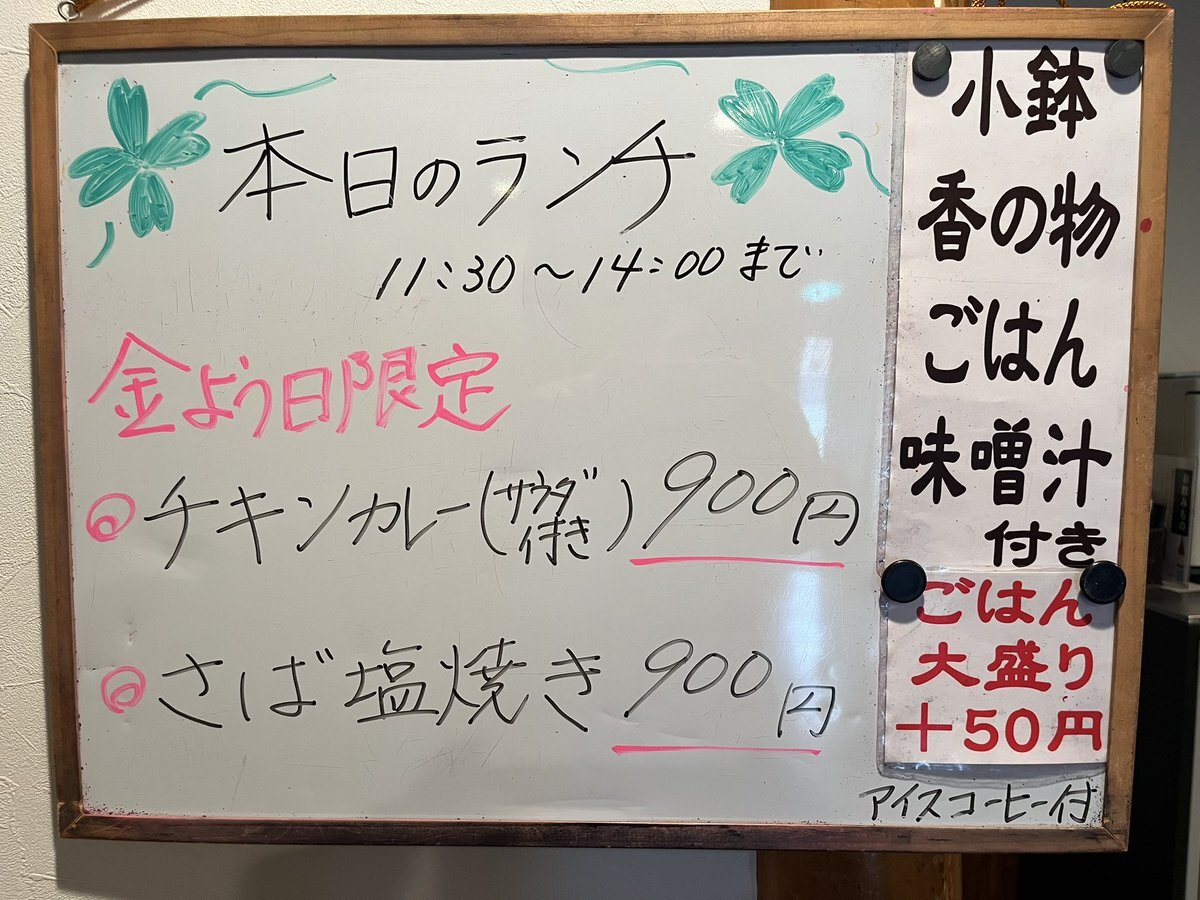 本日のランチ
11:30～14:00まで
金よう日限定
チキンカレー(サウダ付き) 900円
さば塩焼き 900円
小鉢
香の物
ごはん
味噌汁
付き
ごはん
大盛り
+50円
アイスコーヒー付